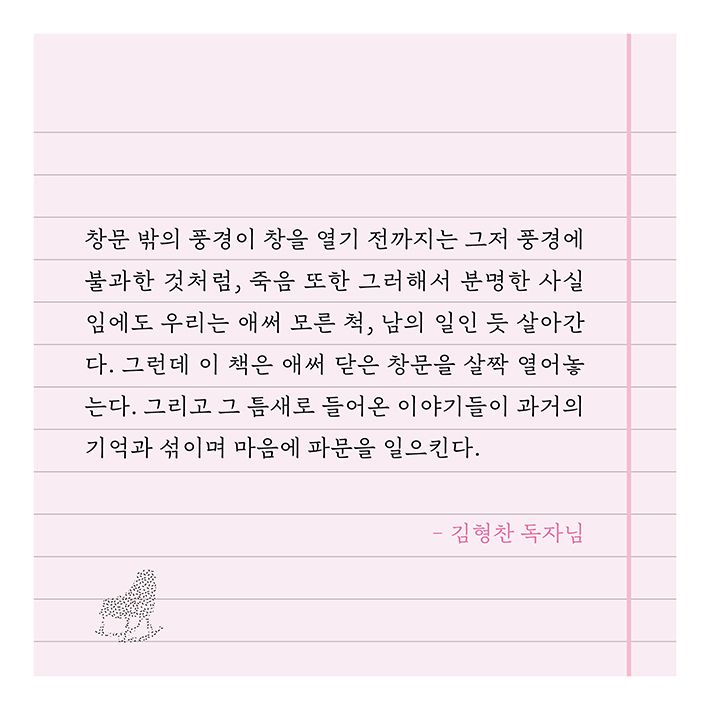 창문 밖의 풍경이 창을 열기 전까지는 그저 풍경에
불과한 것처럼, 죽음 또한 그러해서 분명한 사실
임에도 우리는 애써 모른 척, 남의 일인 듯 살아간
다. 그런데 이 책은 애써 닫은 창문을 살짝 열어놓
는다. 그리고 그 틈새로 들어온 이야기들이 과거의
기억과 섞이며 마음에 파문을 일으킨다.
- 김형찬 독자님